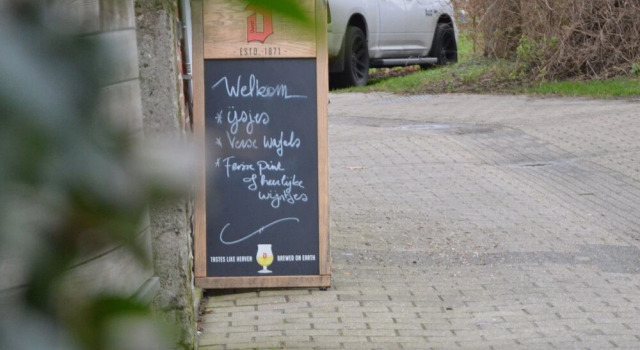 D
ESTD. 1871
Welkom
* ijsjes
* Verse Wafels
* Frisse pint
of heerlijke
wijntjes
TASTES LIKE HEAVEN BREWED ON EARTH